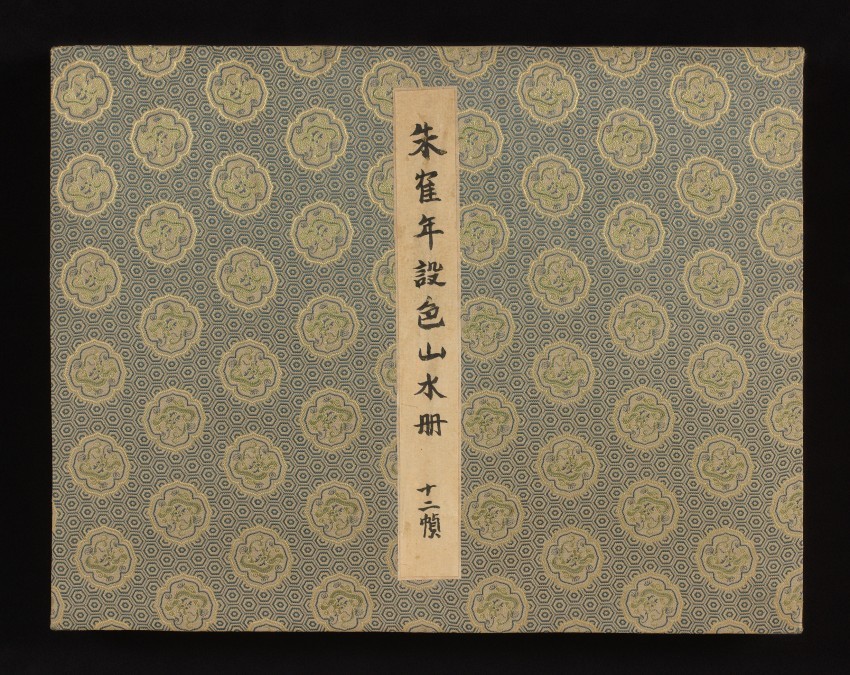 朱隺年設色山水册
十二幀